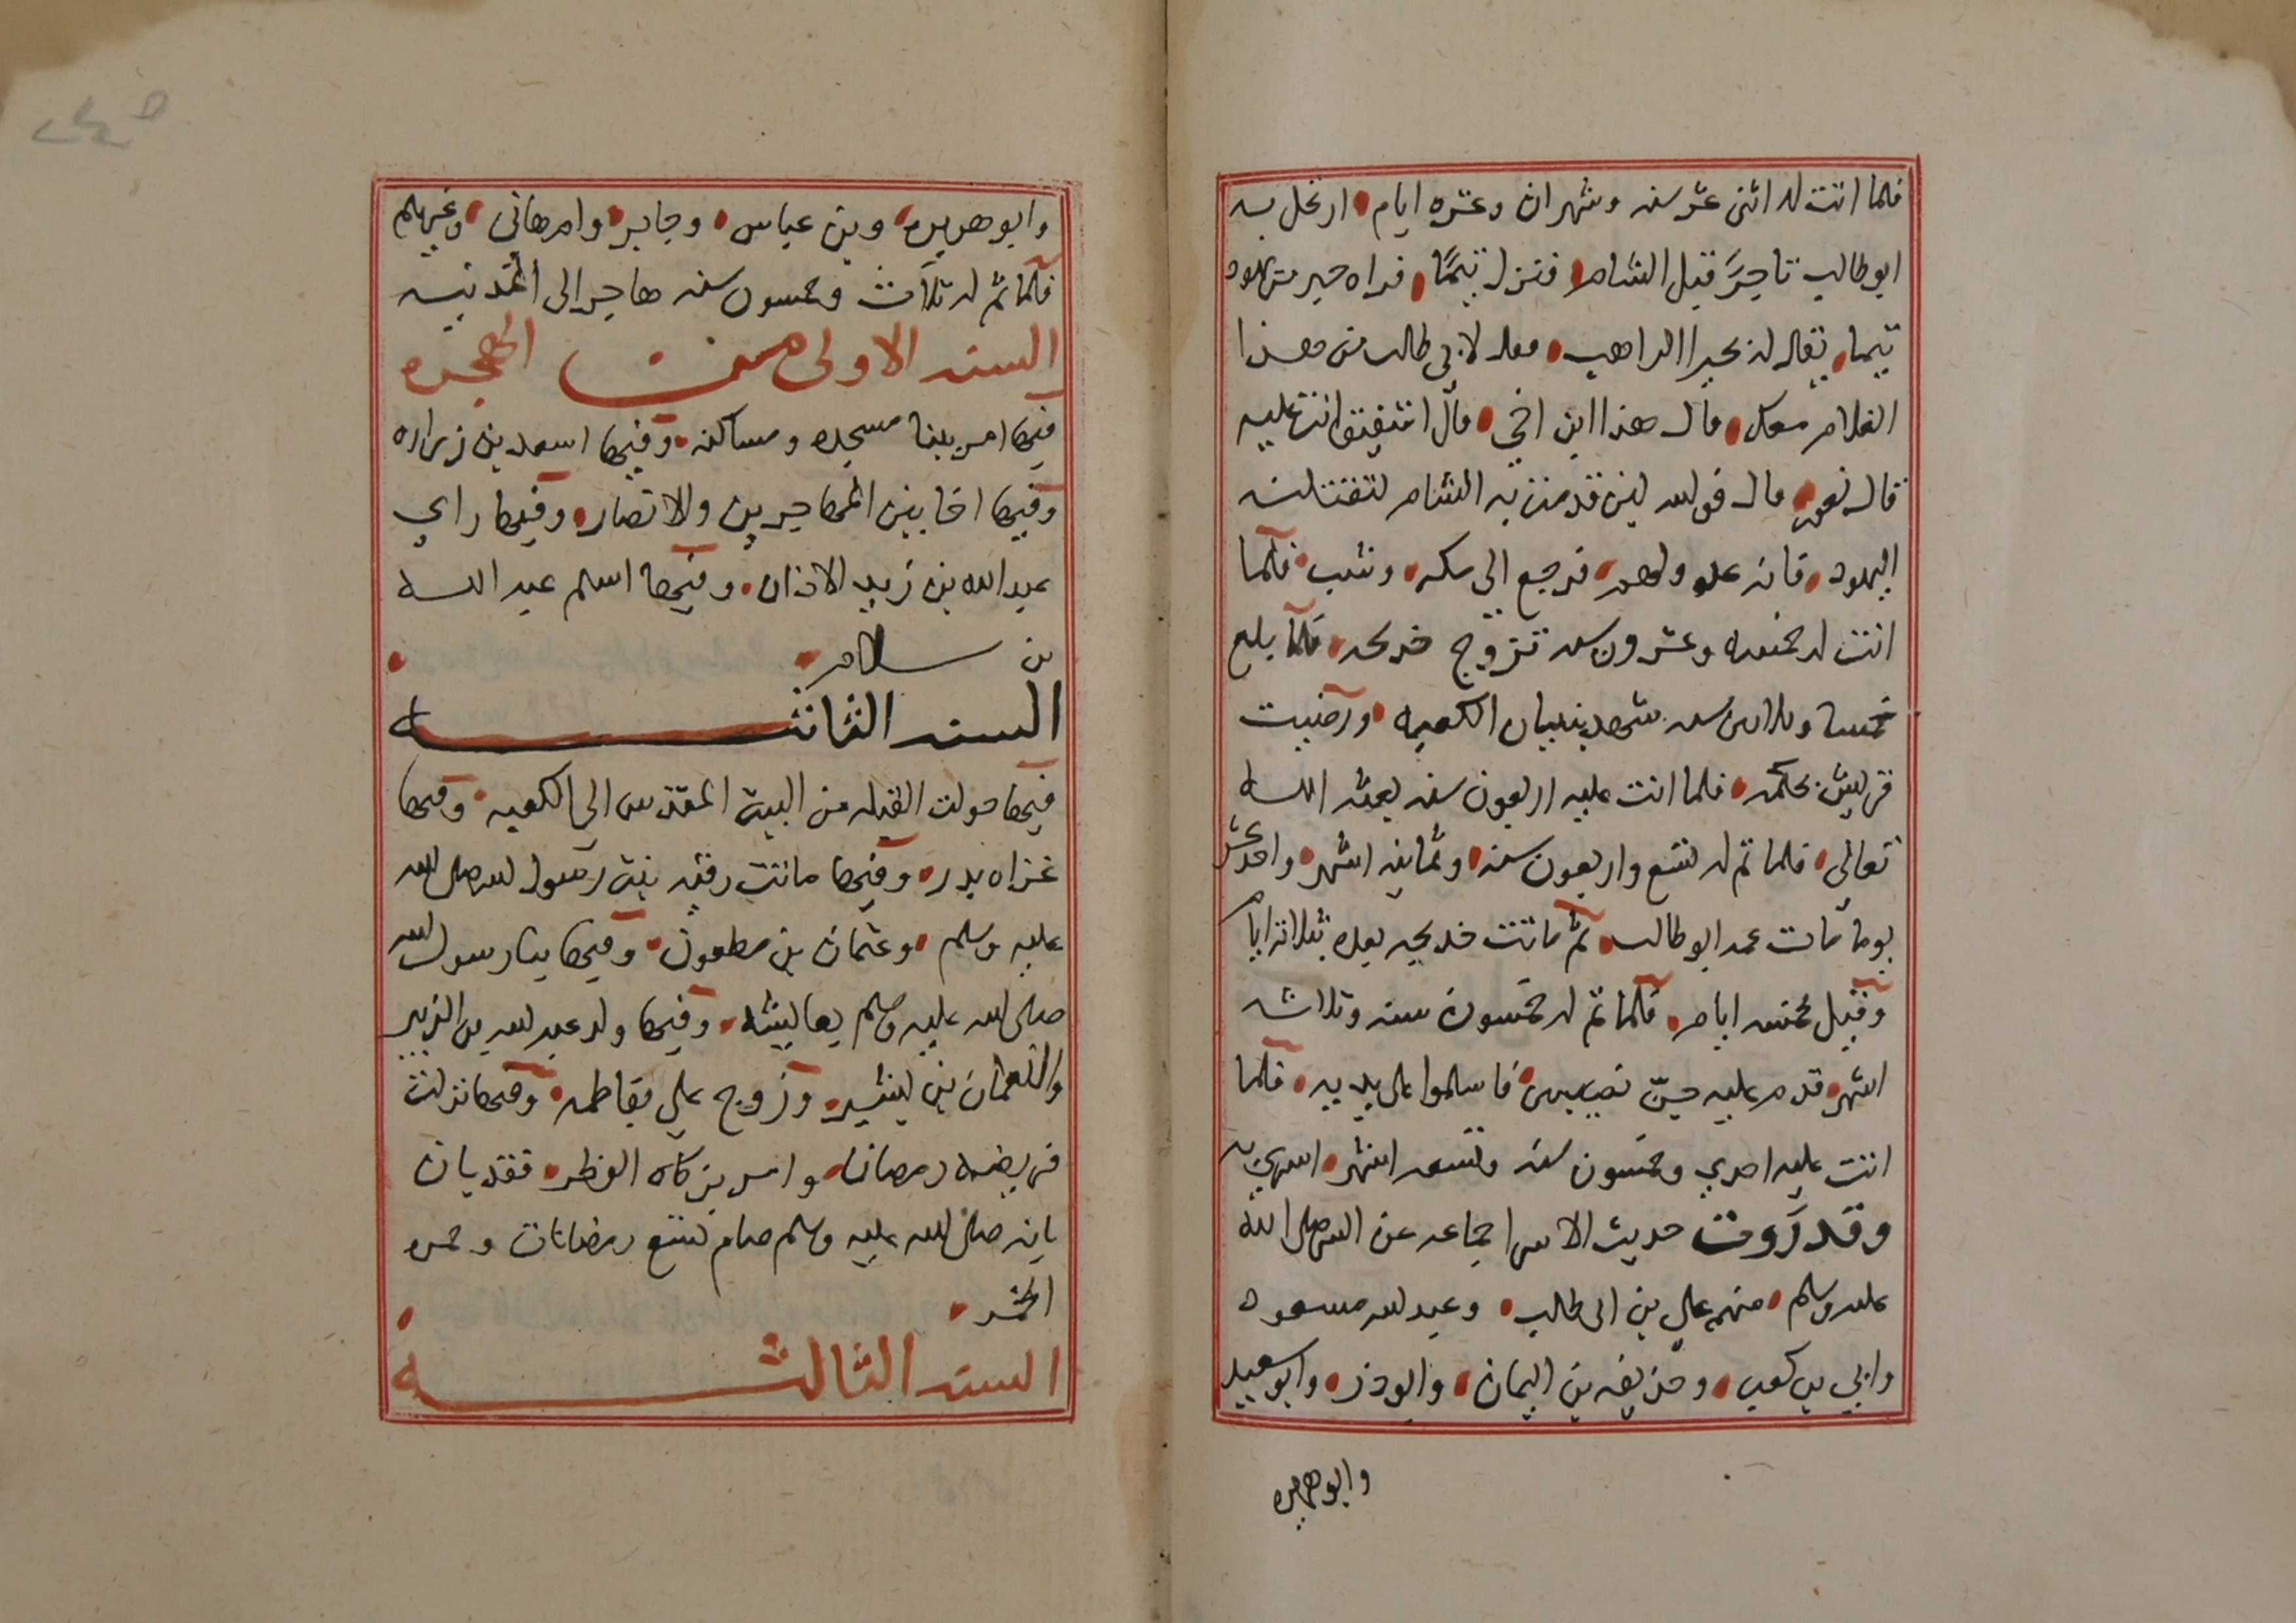 فلما اتت له اثنى عشر سنه وشهران وعشره ايام ارتحل به
ابو طالب تاجرًا قبل الشام فنزل تيمًا فراه حبر من يهود
تيما يقال له بحيرا الراهب فقال لابي طالب من هذا
الغلام معك قال هذا ابن اخي قال اشفيق انت عليه
قال نعم قال فوالله لين قدمت به الشام لتقتلنه
اليهود فانه عدو لهم فرجع الى مكه وشب فلما
اتت له خمسه وعشرون سنه تزوج خديجه فلما بلغ
خمسا وثلاثين سنه شهد بنيان الكعبه ورضيت
قريش بحكمه فلما اتت عليه اربعون سنه بعثه الله
تعالى فلما تم له تسع واربعون سنه وثمانيه اشهر واحد عشر
يوما مات عمه ابو طالب ثم ماتت خديجه بعده بثلاثة ايام
وقيل بخمسه ايام فلما تم له خمسون سنه وثلاثه
اشهر قدم عليه جن نصيبين فاسلموا على يديه فلما
اتت عليه احدي وخمسون سنه وتسعه اشهر اسري به
وقد روت حديث الاسرا جماعه عن النبي صلى الله
عليه وسلم منهم علي بن ابى طالب وعبد الله مسعود
وابي بن كعب وحذيفه بن اليمان وابو ذر وابو سعيد
وابو هريره
وابو هريره وبن عباس وجابر وام هانى وغيرهم
فلما تم له ثلاث وخمسون سنه هاجر الى المدينه
السنه الاولى من الهجره
فيها امر ببنا مسجده ومساكنه وفيها اسعد بن زراره
وفيها اخا بين المهاجرين والانصار وفيها راي
عبد الله بن زيد الاذان وفيها اسلم عبد الله
بن سلام
السنه الثانيه
فيها حولت القبله من البيت المقدس الي الكعبه وفيها
غزاه بدر وفيها ماتت رقيه بنت رسول الله صلى الله
عليه وسلم وعثمان بن مظعون وفيها بنا رسول الله
صلى الله عليه وسلم بعايشه وفيها ولد عبد الله بن الزبير
والنعمان بن بشير وزوج علي بفاطمه وفيها نزلت
فريضه رمضان وامر بزكاه الفطر فقد بان
بانه صلى الله عليه وسلم صام تسع رمضانات وحمزه
السنه الثالثه